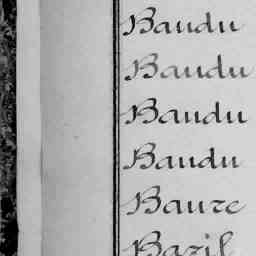 Baudu
Baudu
Baudu
Baudu
Bauze
Bazil